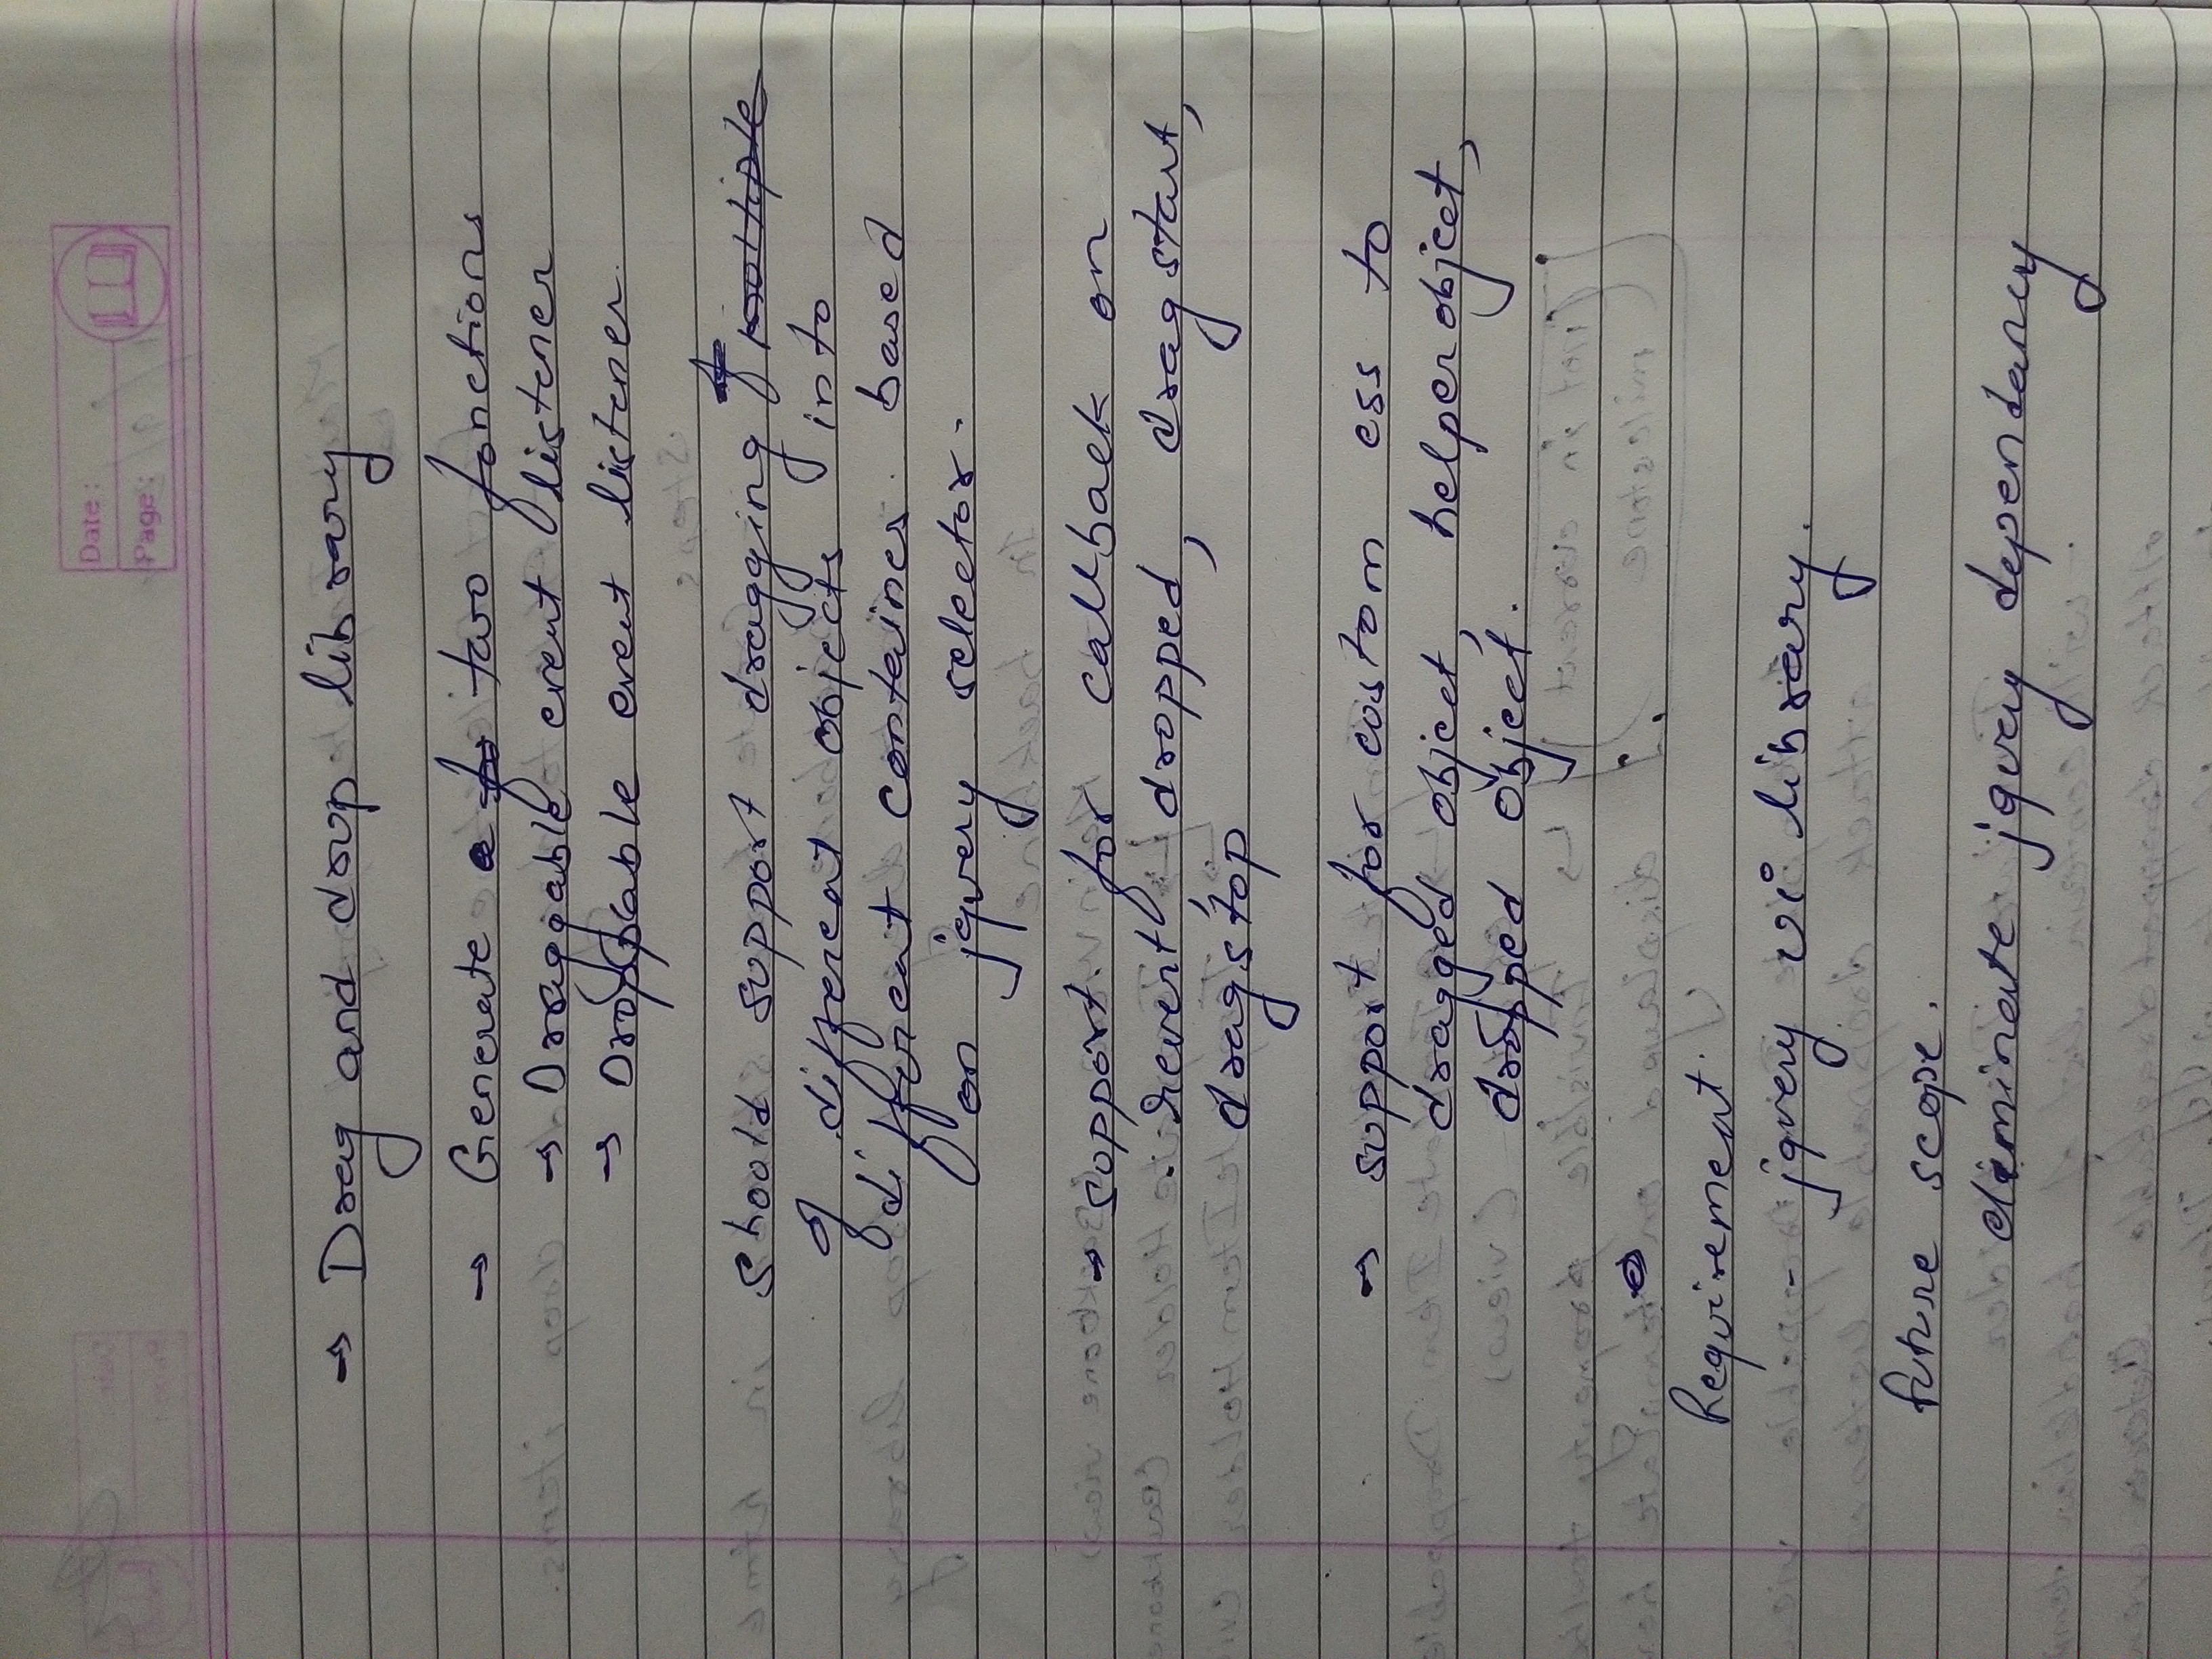 Date :
Page :
→ Drag and drop library
→ Generate two functions
→ Draggable event listener
→ Droppable event listener.
should support dragging
of different objects into
different container based
on jquery selector.
→ support for callback on
revert, dropped, dragstart,
dragstop
→ support for custom css to
dragged object, helper object,
dropped object.
Requirement
- jquery ui library.
future scope.
eliminate jquery dependancy